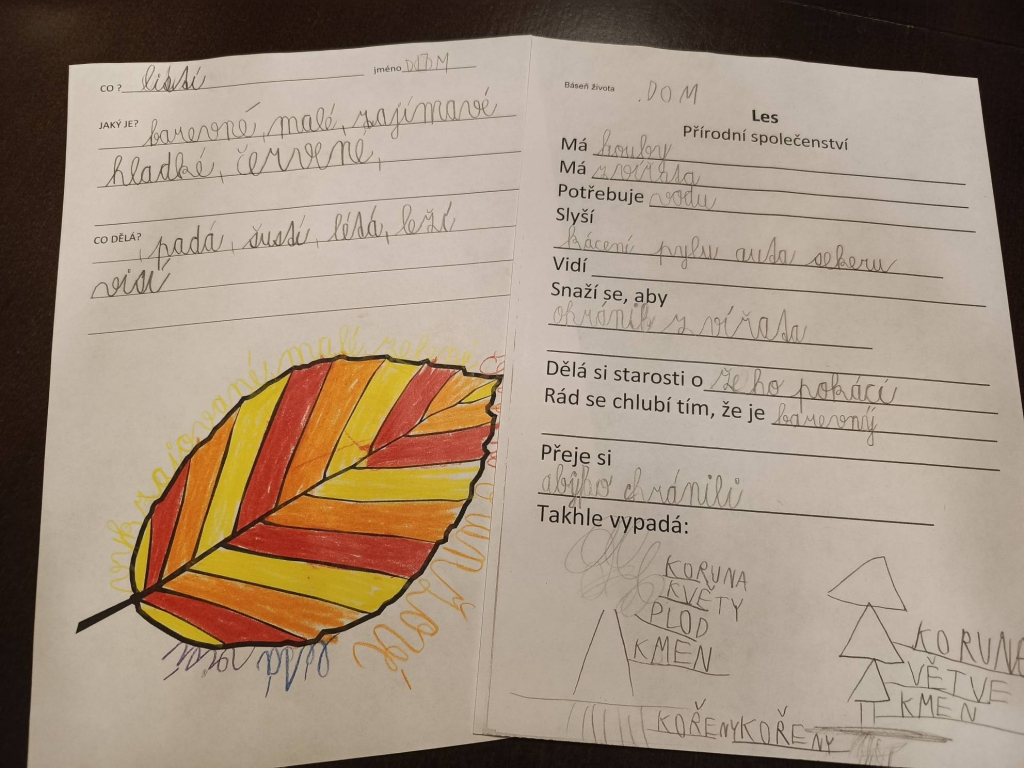 CO ? listí jméno DOM
JAKÝ JE? barevné, malé, zajímavé
hladké, červené,
CO DĚLÁ? , padá, šustí, létá, leží
visí
malé
létá
Báseň života .DOM
Les
Přírodní společenství
Má houby
Má zvířata
Potřebuje vodu
Slyší
kácení pylu auta sekeru
Vidí
Snaží se, aby
ohránik z vířata
Dělá si starosti o že ho pokácí
Rád se chlubí tím, že je barevný
Přeje si
abyho chránili
Takhle vypadá:
KORUNA
KVĚTY
PLOD
KMEN
KOŘENY
KORUNA
VĚTVE
KMEN
KOŘENY